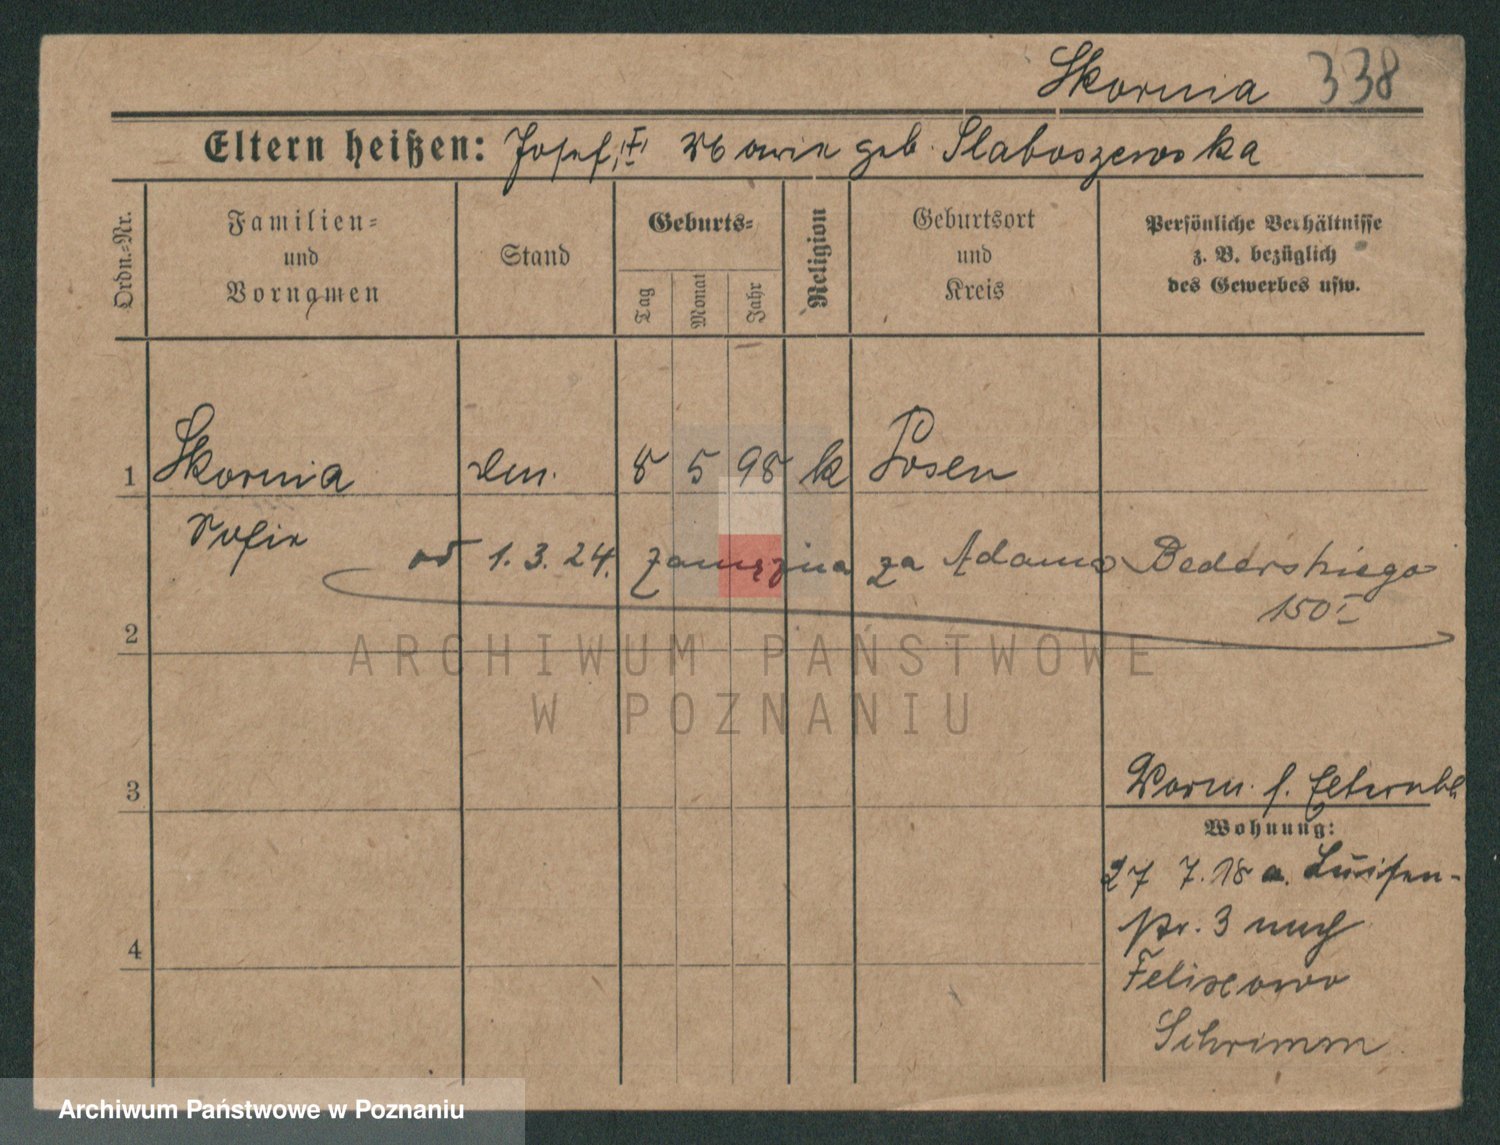 Skornia 338
Eltern heißen: Josef, Maria geb. Slaboszewska
Ordn.-Nr.
Familien-
und
Vornamen
Stand
Geburts-
Tag
Monat
Jahr
Religion
Geburtsort
und
Kreis
Persönliche Verhältnisse
z. B. bezüglich
des Gewerbes usw.
1 Skornia 8 5 98 k Posen
Sofia
od 1. 3. 24. zamężna za Adama Bederskiego
150
2
ARCHIWUM PAŃSTWOWE
W POZNANIU
3
Vorm. s. Elternbl.
Wohnung:
27 7. 18 a. Luisen-
str. 3 nach
4
Felixowo
Schrimm
Archiwum Państwowe w Poznaniu